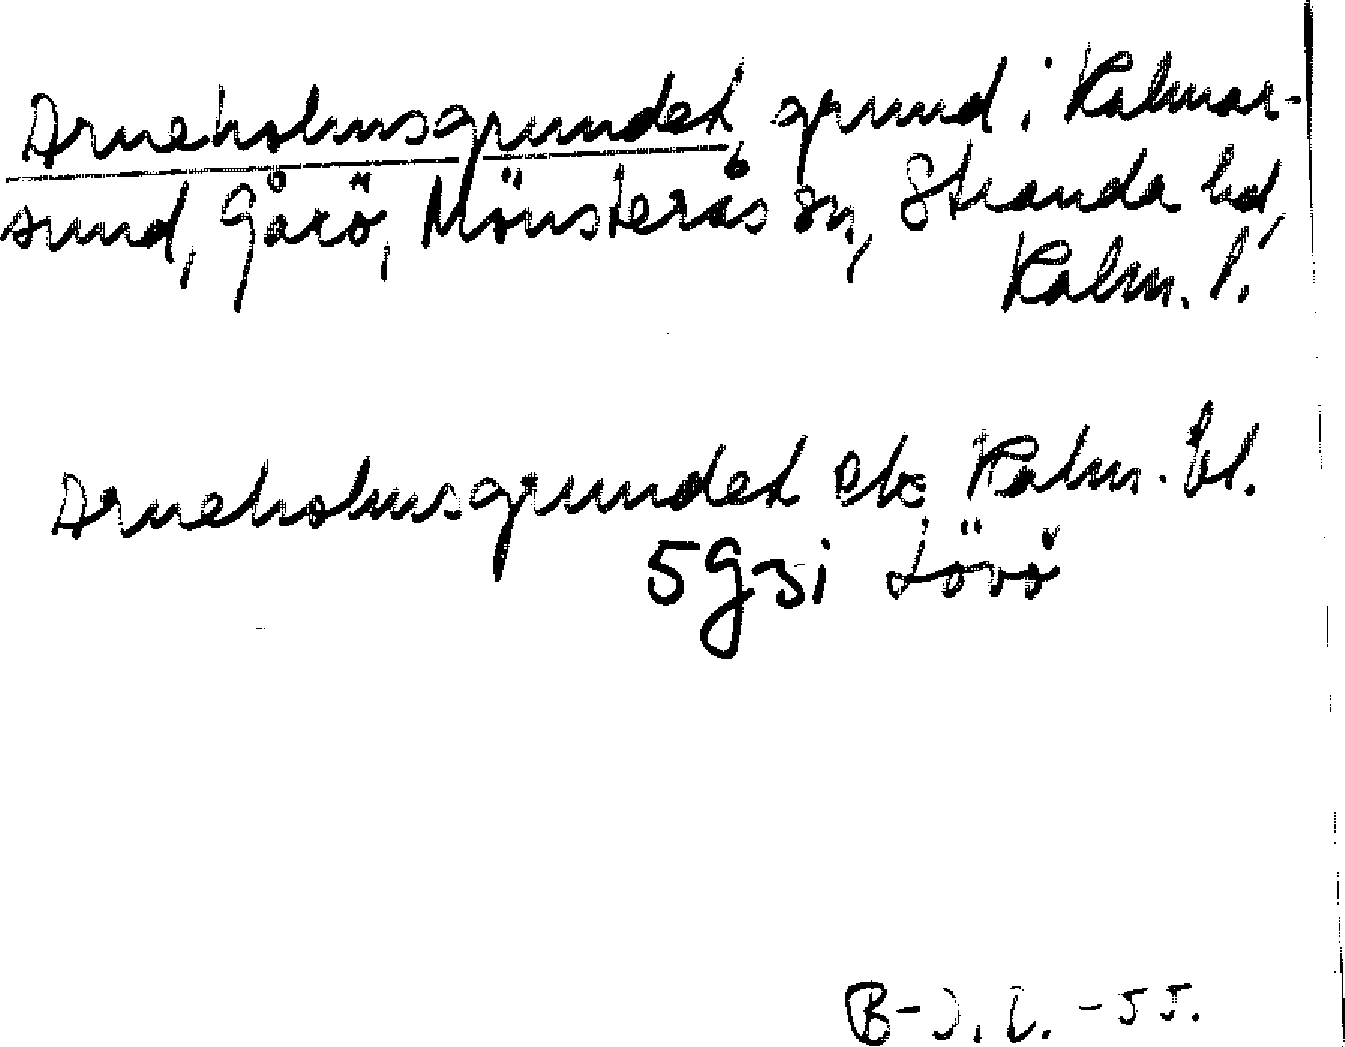 Arneholmsgrundet, grund i Kalmar-
sund, Gårö, Mönsterås sn, Stranda hd,
Kalm. l.
Arneholmsgrundet ek Kalm. bl.
5g3i Lövö
B-J. L. -55.